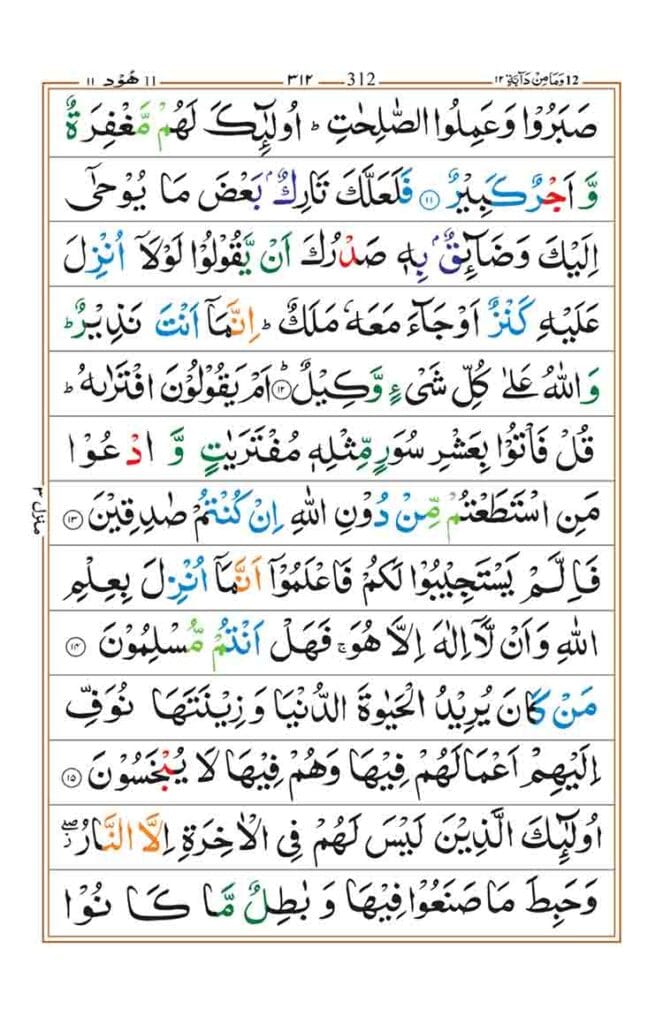 12 وَمَا مِنْ دَآبَّةٍ ١٢ 312 ٣١٢ 11 هُوْد ١١
صَبَرُوْا وَعَمِلُوا الصّٰلِحٰتِ ؕ اُولٰٓئِكَ لَهُمْ مَّغْفِرَةٌ
وَّاَجْرٌ كَبِيْرٌ ۝۱۱ فَلَعَلَّكَ تَارِكٌۢ بَعْضَ مَا يُوْحٰٓى
اِلَيْكَ وَضَآئِقٌۢ بِهٖ صَدْرُكَ اَنْ يَّقُوْلُوْا لَوْلَاۤ اُنْزِلَ
عَلَيْهِ كَنْزٌ اَوْ جَآءَ مَعَهٗ مَلَكٌ ؕ اِنَّمَاۤ اَنْتَ نَذِيْرٌ ؕ
وَاللّٰهُ عَلٰى كُلِّ شَىْءٍ وَّكِيْلٌ ؕ۝۱۲ اَمْ يَقُوْلُوْنَ افْتَرٰٮهُ ؕ
قُلْ فَاْتُوْا بِعَشْرِ سُوَرٍ مِّثْلِهٖ مُفْتَرَيٰتٍ وَّادْعُوْا
مَنِ اسْتَطَعْتُمْ مِّنْ دُوْنِ اللّٰهِ اِنْ كُنْتُمْ صٰدِقِيْنَ ۝۱۳
فَاِلَّمْ يَسْتَجِيْبُوْا لَكُمْ فَاعْلَمُوْۤا اَنَّمَاۤ اُنْزِلَ بِعِلْمِ
اللّٰهِ وَاَنْ لَّاۤ اِلٰهَ اِلَّا هُوَ ۚ فَهَلْ اَنْتُمْ مُّسْلِمُوْنَ ۝۱۴
مَنْ كَانَ يُرِيْدُ الْحَيٰوةَ الدُّنْيَا وَزِيْنَتَهَا نُوَفِّ
اِلَيْهِمْ اَعْمَالَهُمْ فِيْهَا وَهُمْ فِيْهَا لَا يُبْخَسُوْنَ ۝۱۵
اُولٰٓئِكَ الَّذِيْنَ لَيْسَ لَهُمْ فِى الْاٰخِرَةِ اِلَّا النَّارُ ۖ ز
وَحَبِطَ مَا صَنَعُوْا فِيْهَا وَبٰطِلٌ مَّا كَانُوْا
منزل ٣